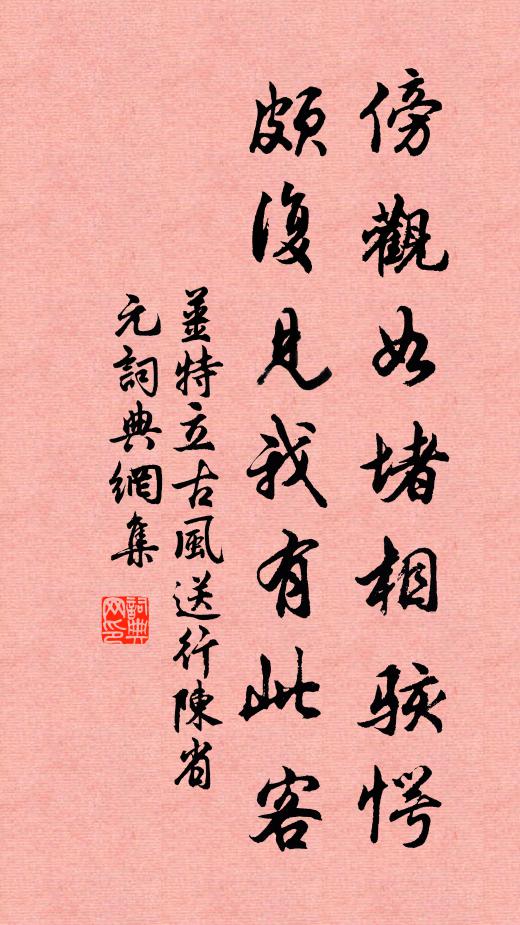 傍觀如堵相駭愕
頗復見我有此客
姜特立古風送行陳省
元詞典網集
詞典网印